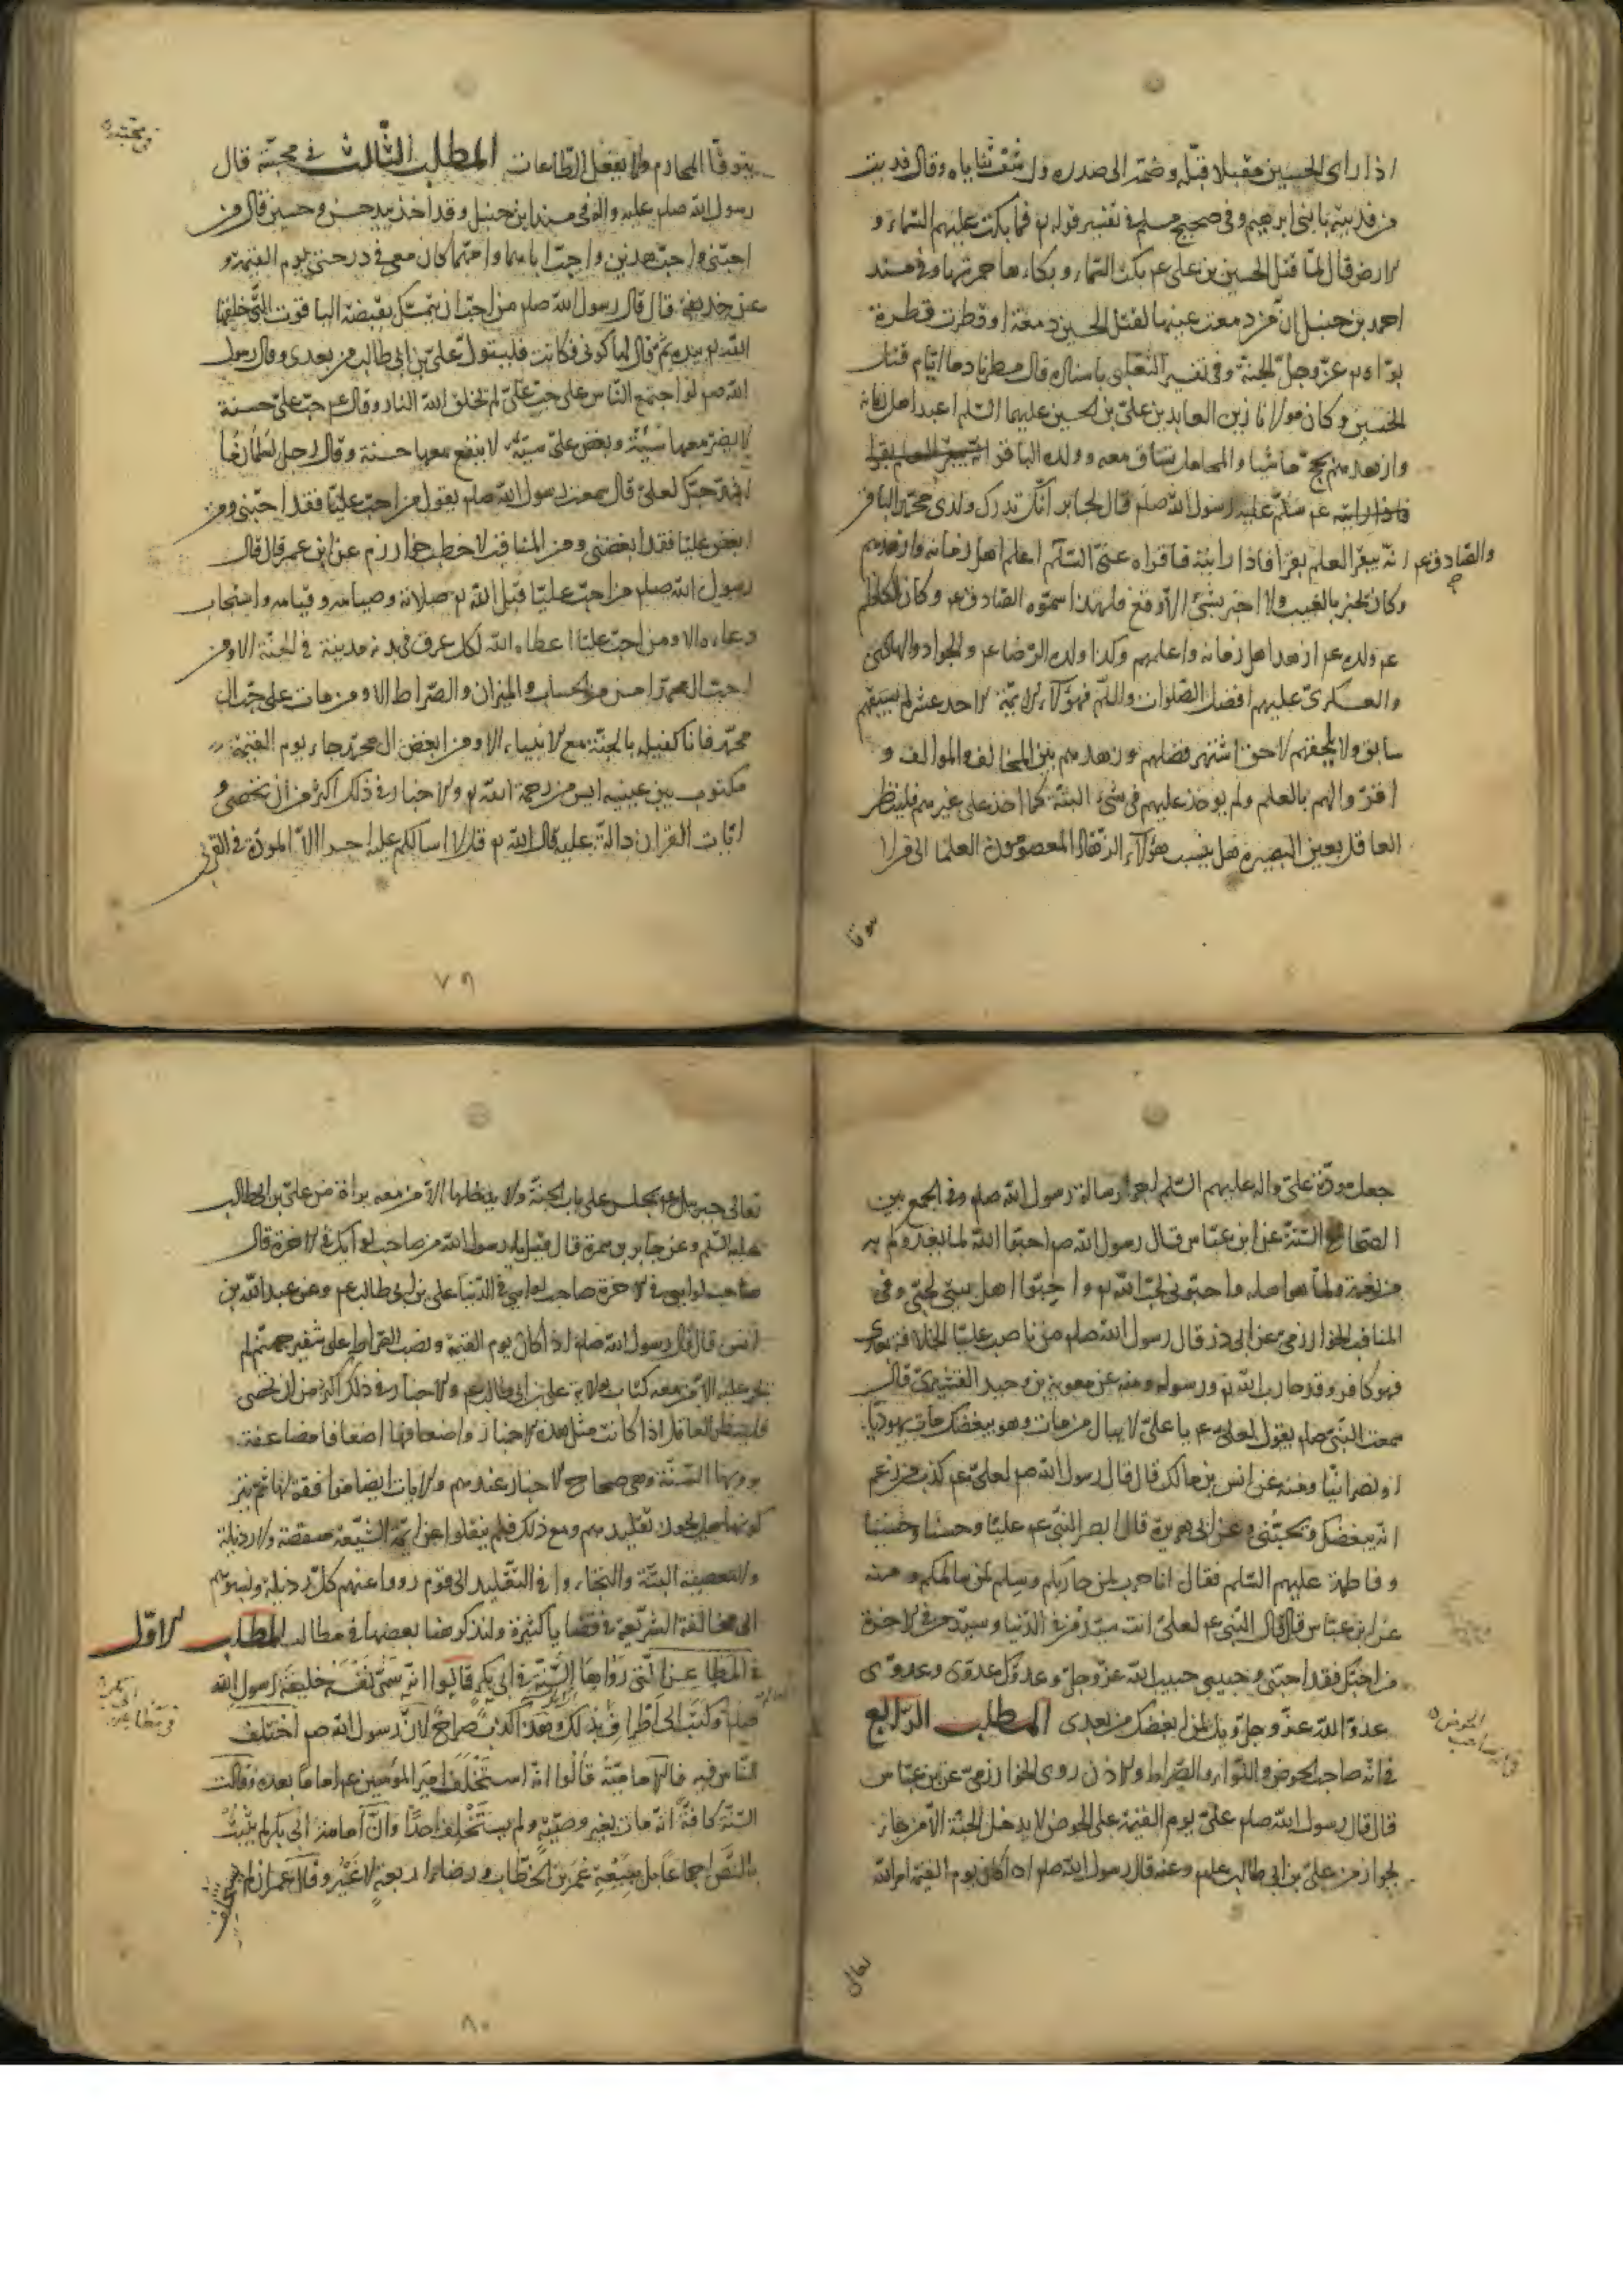 اذا راى الحسين مقبلا قبّله وضمّه الى صدره ورشف ثناياه وقال فديت
من فديته بابنى ابرهيم وفى صحيح مسلم فى تفسير قوله تع فما بكت عليهم السّماء و
الارض قال لمّا قتل الحسين بن على عم بكت السّماء وبكاءها حمرتها وفى مسند
احمد بن حنبل انّ من دمعت عيناه لقتل الحسين دمعة او قطرت قطرة
بوّاه الله عزّ وجلّ الجنّة وفى تفسير الثعلبى باسناده قال مطرنا دما ايّام قتل
الحسين وكان مولانا زين العابدين علىّ بن الحسين عليهما السّلم اعبد اهل زمانه
وازهدهم يحجّ ماشيا والمحامل تساق معه وولده الباقر
سلّم عليه رسول الله صلم قال لجابر انّك تدرك ولدى محمّد الباقر
انّه يبقر العلم بقرا فاذا رايته فاقراه عنّى السّلم اعلم اهل زمانه وازهدهم
والصّادق عم
وكان يخبر بالغيب ولا اخبر بشئ الّا وقع فلهذا سمّوه الصّادق عم وكان الكاظم
عم ولده عم ازهد اهل زمانه واعلمهم وكذا ولده الرّضا عم والجواد والهادى
والعسكرىّ عليهم افضل الصّلوات والسّلم فهؤلآء الائمّة الاحد عشر لم يسبقهم
سابق ولا يلحقهم لاحق اشتهر فضلهم وزهدهم بين المخالف والموالف و
اقرّوا لهم بالعلم ولم يوخذ عليهم فى شئ البتّة كما اخذ على غيرهم فلينظر
العاقل بعين البصيرة هل ينسب هؤلآء الزّهّاد المعصومون العلما الى من لا
يتوقّا المحارم ولا يفعل الطّاعات المطلب الثّالث فى محبّته قال
فى محبّته
رسول الله صلم عليه واله فى مسند ابن حنبل وقد اخذ بيد حسن وحسين قال من
احبّنى واحبّ هذين واحبّ اباهما وامّهما كان معى فى درجتى يوم القيمة و
عن حذيفة قال قال رسول الله صلم من احبّ ان يتمسّك بقبضة الياقوت التّى خلقها
الله تع بيده ثمّ قال لها كونى فكانت فليتولّ علىّ بن ابى طالب من بعدى وقال رسول
الله صم لو اجتمع النّاس على حبّ علىّ لم يخلق الله النار وقال عم حبّ علىّ حسنة
لا يضرّ معها سيّئة وبغض علىّ سيّئة لا ينفع معها حسنة وقال رجل لسلمان ما
اشدّ حبّك لعلىّ قال سمعت رسول الله صلم يقول من احبّ عليّا فقد احبّنى ومن
ابغض عليّا فقد ابغضنى ومن المناقب لاخطب خوارزم عن ابن عمر قال قال
رسول الله صلم من احبّ عليّا قبل الله تع صلاته وصيامه وقيامه واستجاب
دعاءه الا ومن احبّ عليّا اعطاه الله لكل عرق فى بدنه مدينة فى الجنّة الا ومن
احبّ ال محمّد امن من الحساب والميزان والصّراط الا ومن مات على حبّ ال
محمّد فانا كفيله بالجنّة مع الانبياء الا ومن ابغض ال محمّد جاء يوم القيمة
مكتوب بين عينيه ايس من رحمة الله تع والاخبار فى ذلك اكثر من ان تحصى و
ايات القران دالّة عليه قال الله تع قل لا اسالكم عليه اجرا الّا المودّة فى القربى
٧٩
جعل مودّة علىّ واله عليهم السّلم اجر رسالة رسول الله صلم وفى الجمع بين
الصّحاح السّتّة عن ابن عبّاس قال رسول الله صم احبّوا الله لما يغذوكم به
من نعمة ولما هو اهله واحبّونى لحبّ الله تع واحبّوا اهل بيتى لحبّى وفى
المناقب الخوارزمىّ عن ابى ذرّ قال رسول الله صلم من ناصب عليّا الخلافة بعدى
فهو كافر وقد حارب الله تع ورسوله ومنه عن معوية بن وحيد القشيرىّ قال
سمعت النّبى صلم يقول لعلىّ عم يا علىّ لا يبال من مات وهو يبغضك مات يهوديّا
او نصرانيّا ومنه عن انس بن مالك قال قال رسول الله صم لعلىّ عم كذب من زعم
انّه يبغضك ويحبّنى وعن ابى هريرة قال ابصر النّبى عم عليّا وحسنا وحسينا
وفاطمة عليهم السّلم فقال انا حرب لمن حاربكم وسلم لمن سالمكم ومنه
عن ابن عبّاس قال قال النّبى عم لعلىّ انت سيّد فى الدّنيا وسيّد فى الاخرة
من احبّك فقد احبّنى وحبيبى حبيب الله عزّ وجلّ وعدوّك عدوّى وعدوّى
عدوّ الله عزّ وجلّ ويل لمن ابغضك من بعدى المطلب الرّابع
فى انّه صاحب الحوض
فى انّه صاحب الحوض واللّواء والصّراط والاذن روى الخوارزمىّ عن ابن عبّاس
قال قال رسول الله صلم علىّ يوم القيمة على الحوض لا يدخل الجنّة الّا من جاء
بجواز من علىّ بن ابى طالب عم وعنه قال رسول الله صلم اذا كان يوم القيمة امر الله
تعالى
تعالى جبريل عم ان يجلس على باب الجنّة ولا يدخلها الّا من معه براة من علىّ بن ابى طالب
عليه السّلم وعن جابر بن سمرة قال قيل يا رسول الله من صاحب لوآيك فى الاخرة قال
صاحب لوايى فى الاخرة صاحب لوايى فى الدّنيا علىّ بن ابى طالب عم وعن عبد الله بن
انس قال قال رسول الله صلم اذا كان يوم القيمة ونصب الصّراط على شفير جهنّم لم
يجز عليه الّا من معه كتاب ولاية علىّ بن ابى طالب عم والاخبار فى ذلك اكثر من ان تحصى
فلينظر العاقل اذا كانت مثل هذه الاخبار واضعافها اضعافا مضاعفة
يرويها السّنّة وهى صحاح الاخبار عندهم والايات ايضا موافقة لها ثمّ
تقليدهم ومع ذلك فلم ينقلوا عن ايمّة الشّيعة منقصة ولا رذيلة
ولا معصية البتّة والتجاءوا فى التّقليد الى قوم رووا عنهم كلّ رذيلة ونسبوهم
الى مخالفة الشّريعة فى قضايا كثيرة ولنذكر هنا بعضها فى مطالب المطلب الاوّل
فى مطاعن ابى بكر
فى المطاعن الّتى رواها السّنّة فى ابى بكر قالوا انّه سمّى نفسه خليفة رسول الله
صلم وكتب الى الاطراف بذلك وهذا كذب صراح لانّ رسول الله صم اختلف
النّاس فيه فالاماميّة قالوا انّه استخلف امير المؤمنين عم اماما بعده وقالت
السّنّة كافّة انّه مات بغير وصيّة ولم يستخلف احدا وانّ امامة ابى بكر لم يثبت
بالنّصّ اجماعا بل ببيعة عمر بن الخطّاب ورضاء اربعة لا غير وقال عمر ان لم
استخلف
٨٠